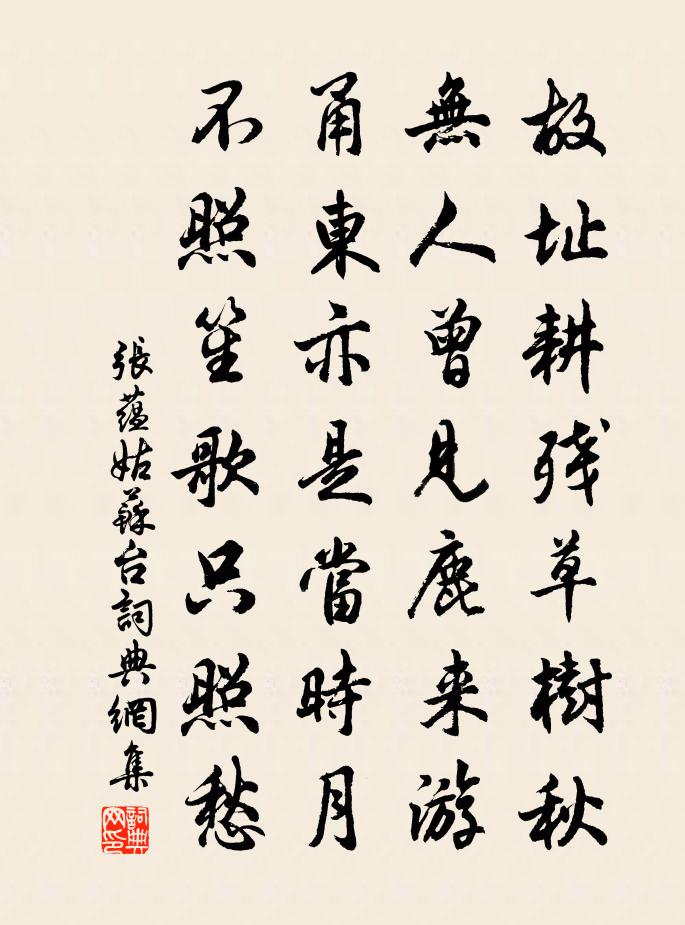 故址耕残草樹秋
無人曾見鹿来游
甬東亦是當時月
不照笙歌只照愁
張蘊姑蘇台詞典網集
詞典網印